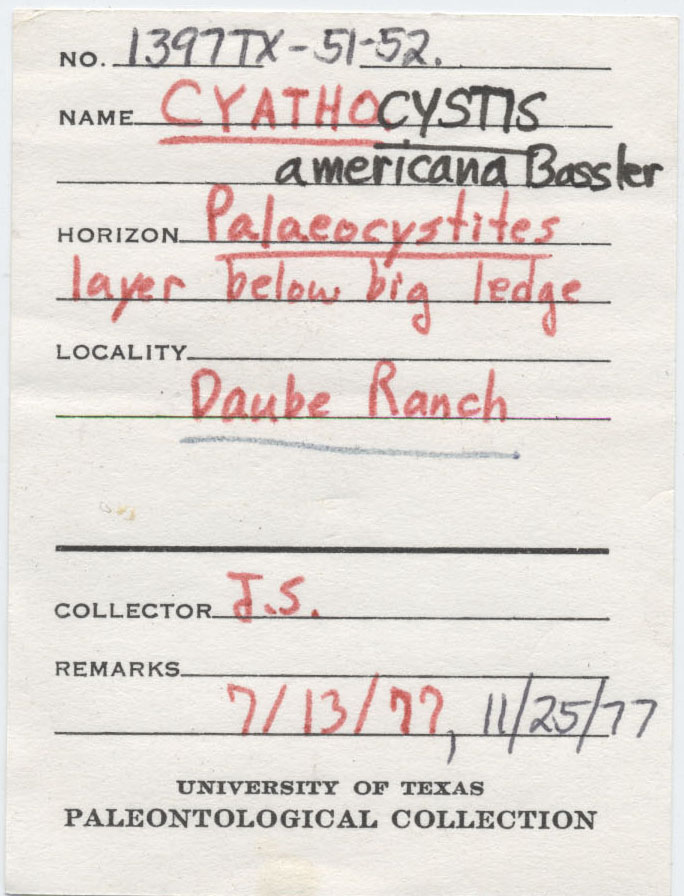 NO. 1397TX-51-52.
NAME CYATHOCYSTIS
americana Bassler
HORIZON Palaeocystites
layer below big ledge
LOCALITY
Daube Ranch
COLLECTOR J.S.
REMARKS
7/13/77, 11/25/77
UNIVERSITY OF TEXAS
PALEONTOLOGICAL COLLECTION